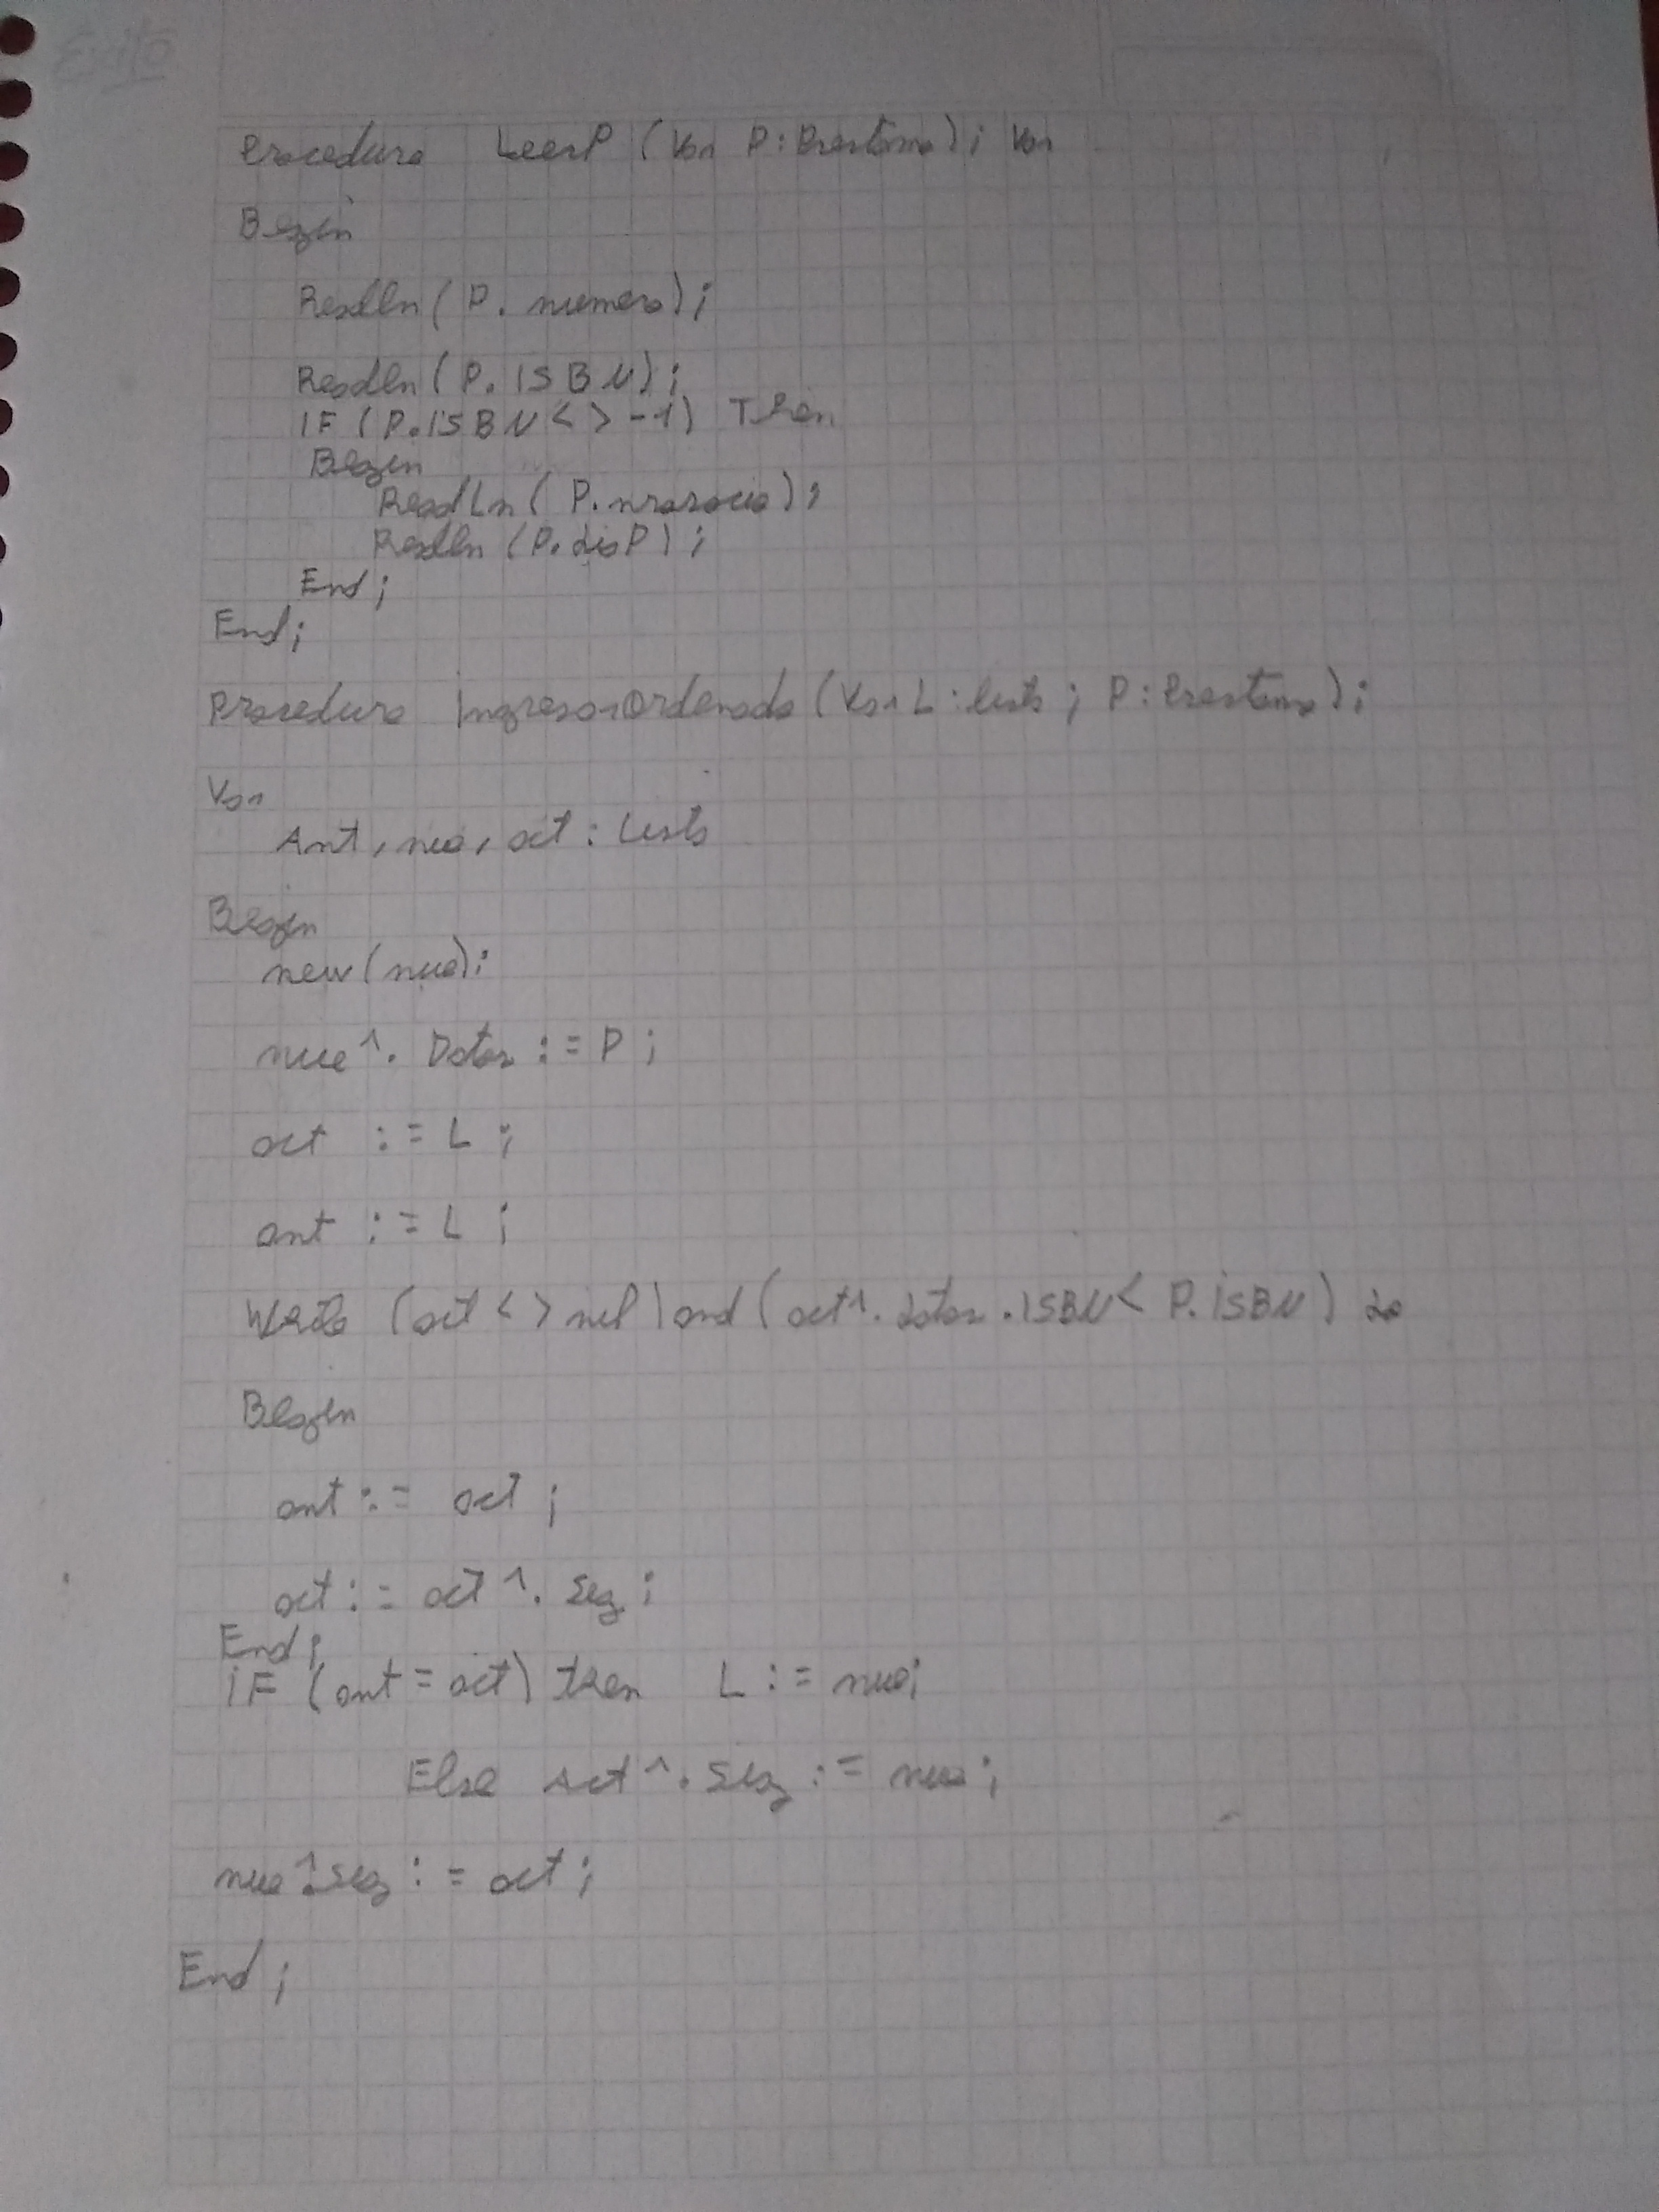 Exito
Procedure LeerP (Var P: Prestamo); Var
Begin
Readln (P. numero);
Readln (P. ISBN);
IF (P.ISBN < > -1) Then
Begin
ReadLn (P.nrosocio);
Readln (P.disP);
End;
End;
Procedure IngresarOrdenado (Var L: lista; P: Prestamo);
Var
Ant, nue, act: Lista
Begin
new (nue);
nue^. Datos := P;
act := L;
ant := L;
While (act < > nil) and (act^. datos. ISBN < P. ISBN) do
Begin
ant := act;
act := act ^. sig;
End;
IF (ant = act) then L := nue;
Else Act ^. sig := nue;
nue^.sig := act;
End;